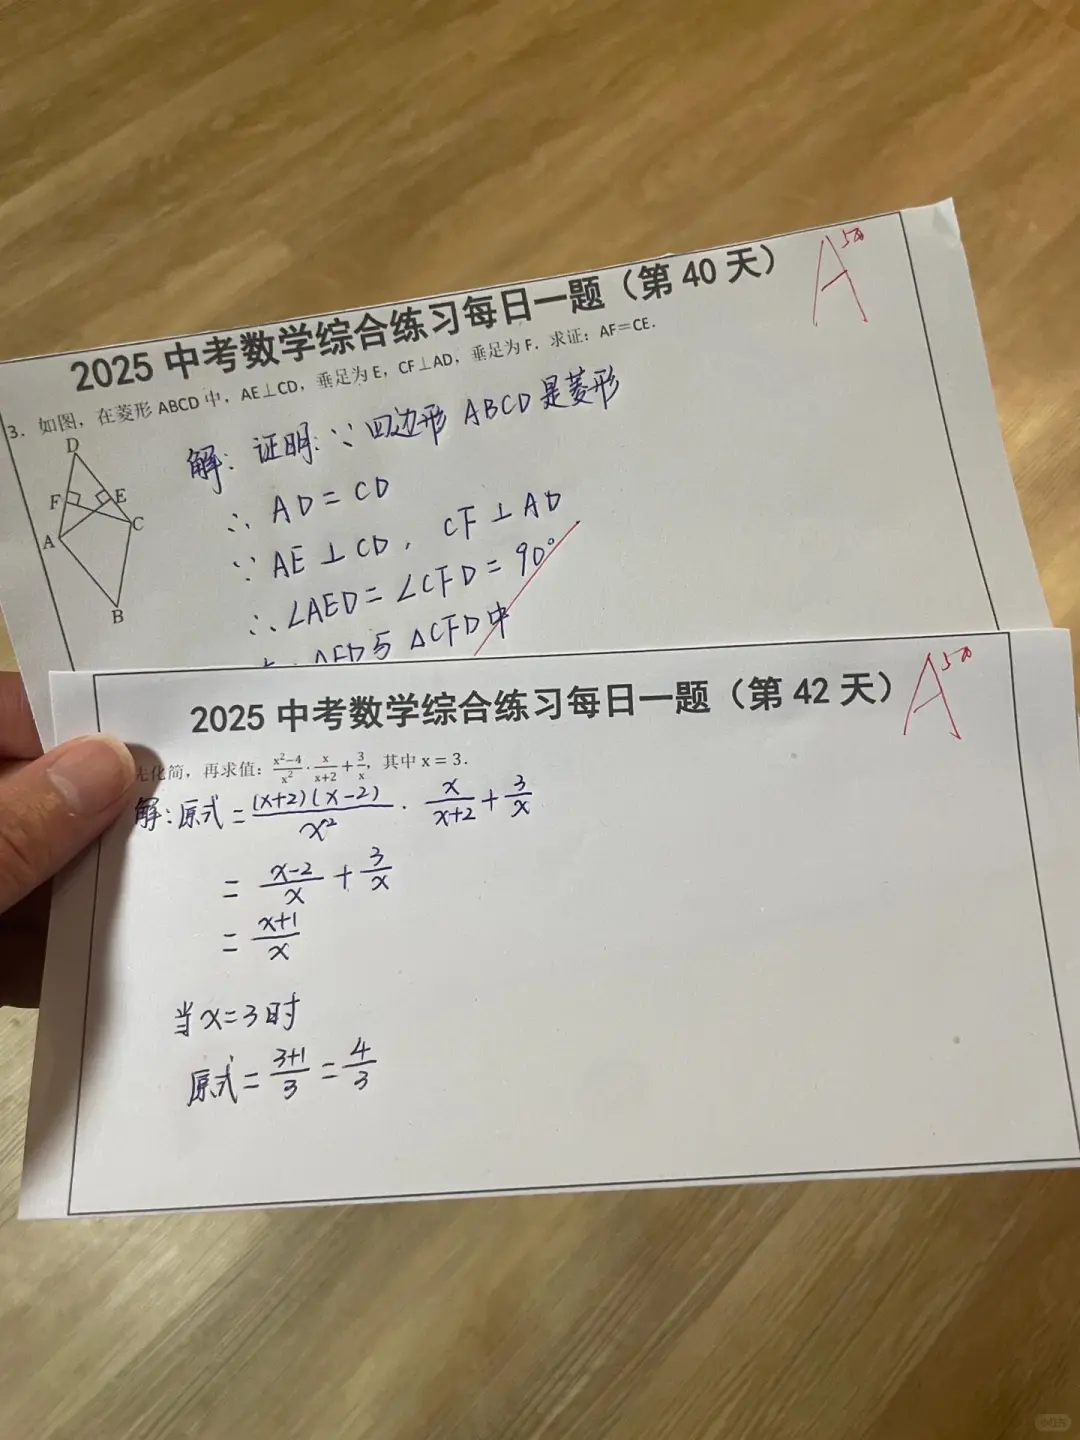 2025 中考数学综合练习每日一题（第 40 天）
A
3. 如图，在菱形 ABCD 中，AE⊥CD，垂足为 E，CF⊥AD，垂足为 F．求证：AF＝CE．
D
F
E
A
C
B
解: 证明: ∵ 四边形 ABCD 是菱形
∴ AD = CD
∵ AE ⊥ CD, CF ⊥ AD
∴ ∠AED = ∠CFD = 90°
△CFD中
2025 中考数学综合练习每日一题（第 42 天）
A
化简，再求值：(x²-4)/x² · x/(x+2) + 3/x，其中 x = 3．
解: 原式 = (x+2)(x-2)/x² · x/(x+2) + 3/x
= (x-2)/x + 3/x
= (x+1)/x
当 x=3 时
原式 = (3+1)/3 = 4/3
小红书